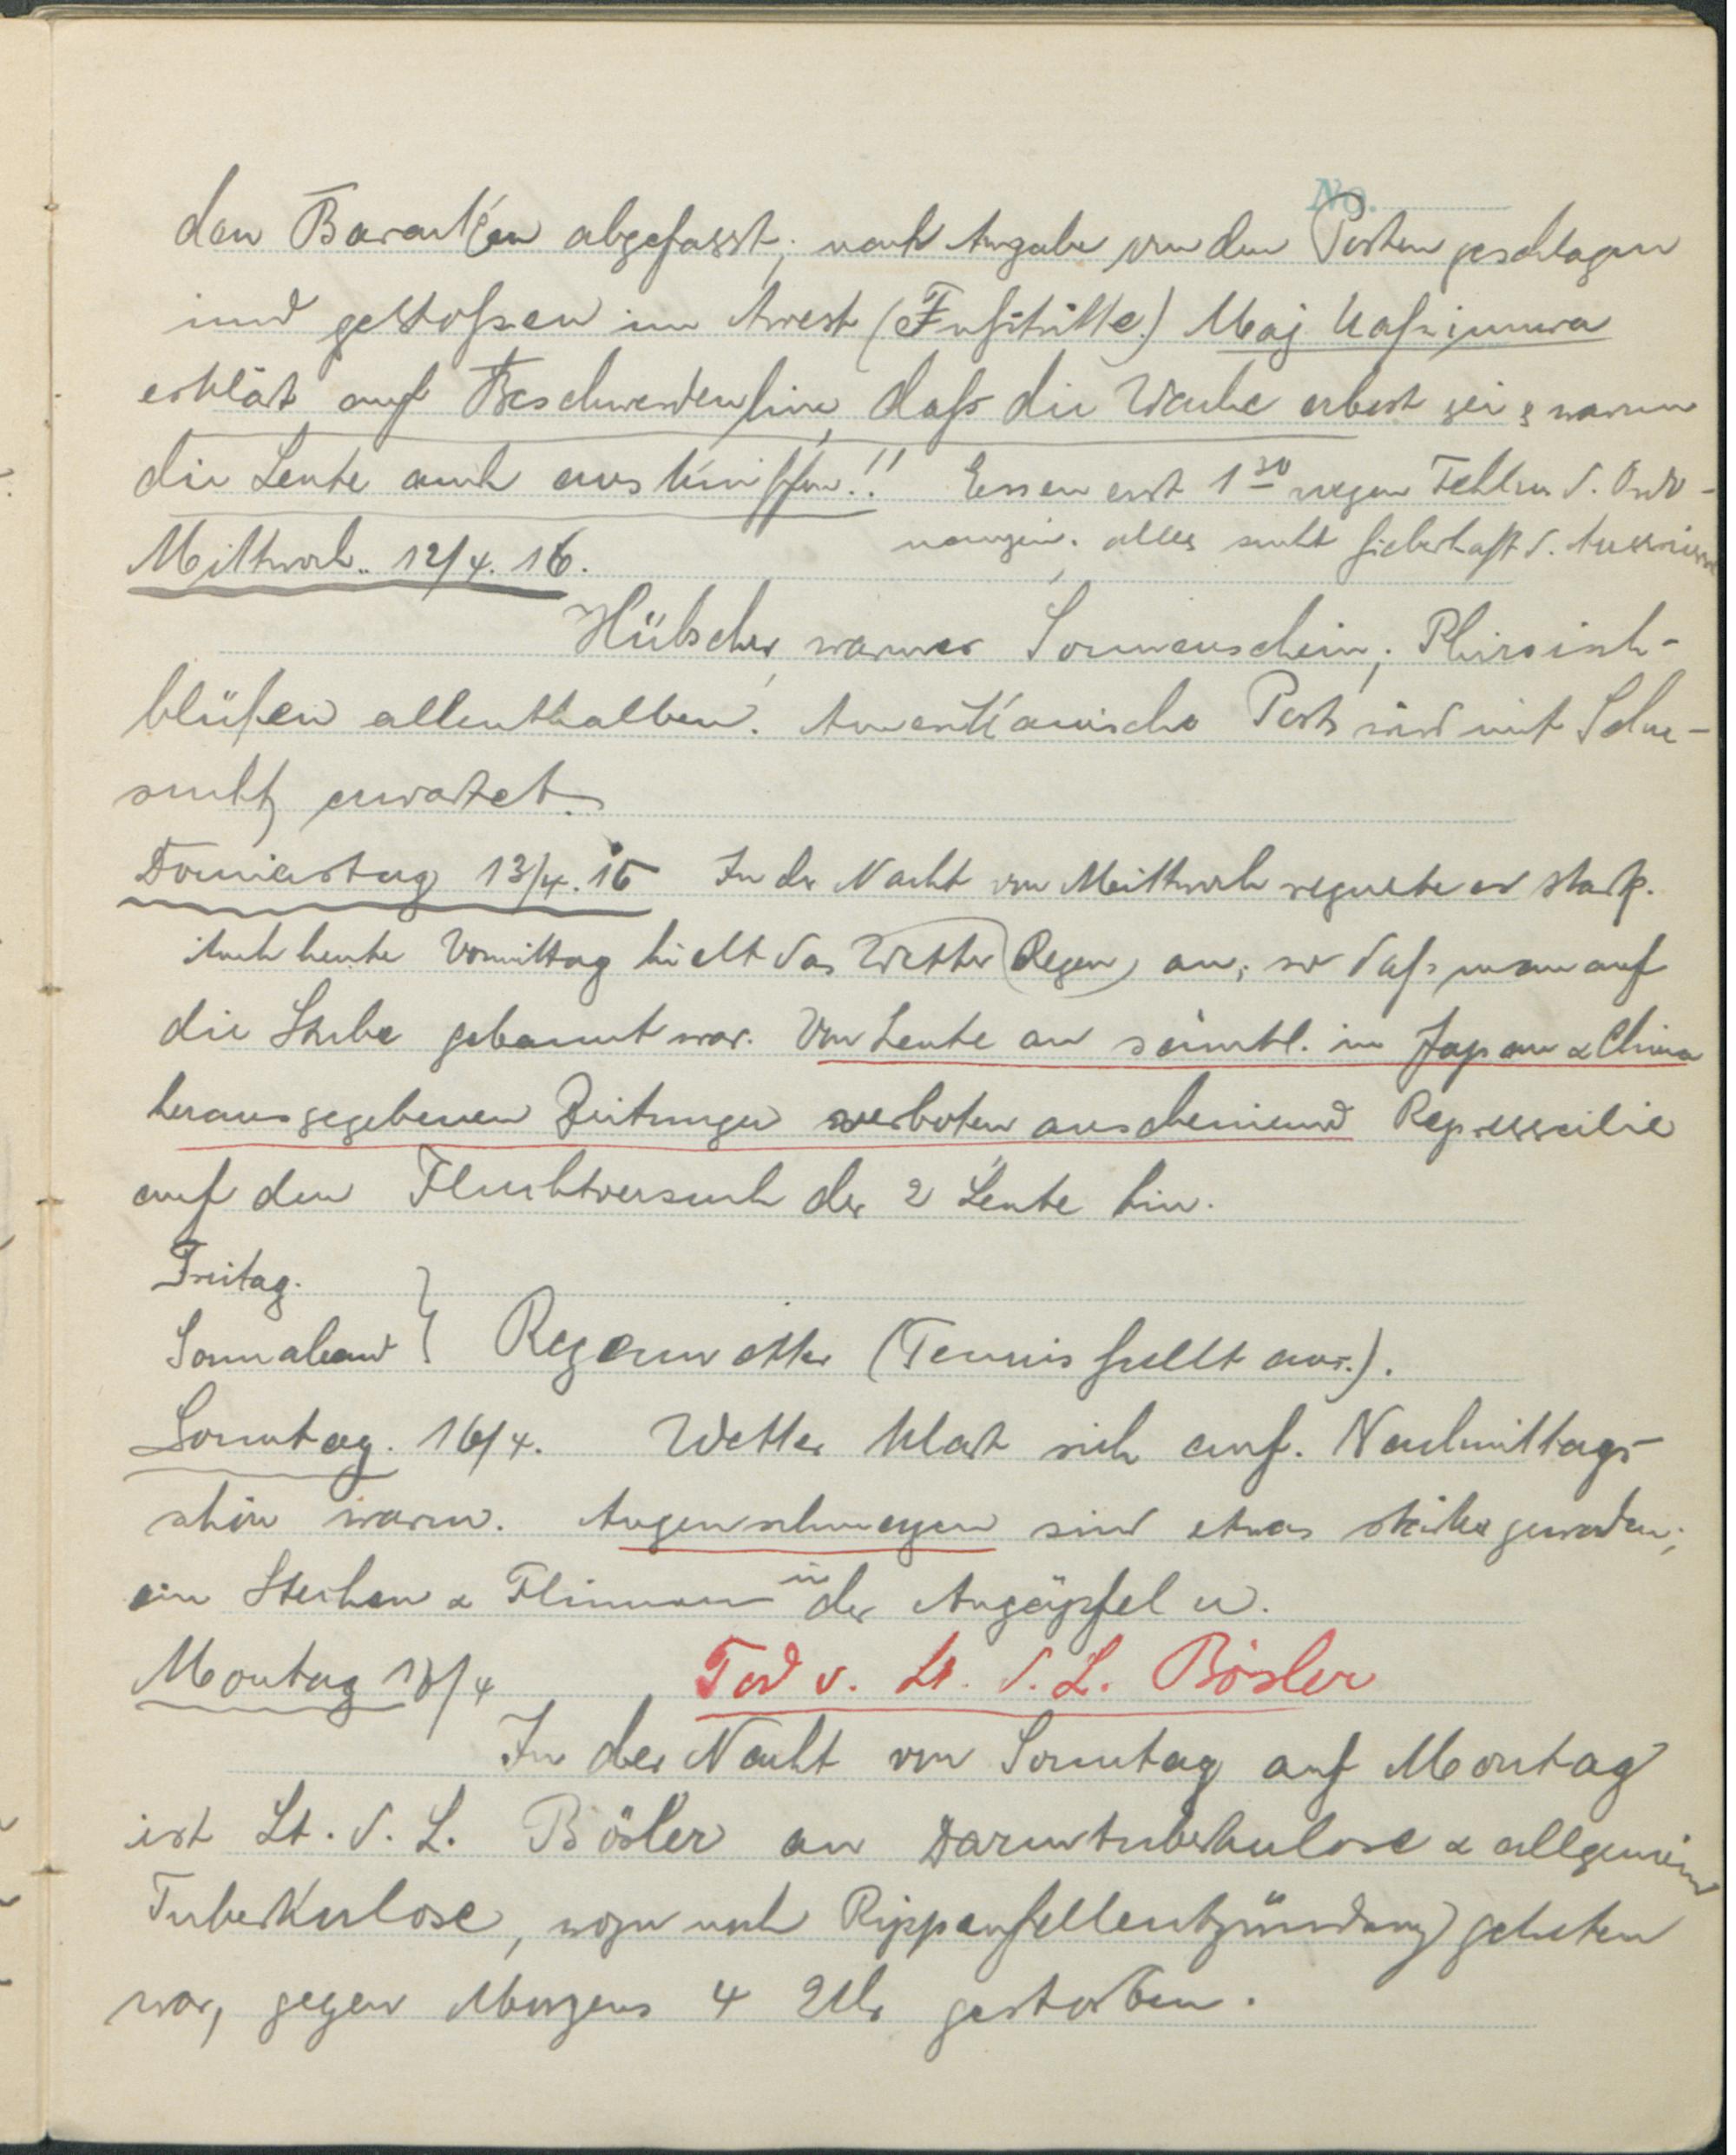 No.
den Baracken abgefasst; nach Angabe von den Posten geschlagen
und gestoßen im Arrest (Fußtritte.) Maj
erklärt auf Beschwerden hin, daß die Wache erbost sei; warum
die Leute auch auskniffen!! Essen erst 1³⁰ wegen Fehlen d. Ordo-
nanzen; alles sucht fieberhaft d. Ausreisser
Mittwoch. 12/4. 16.
Hübscher, warmer Sonnenschein; Pfirsich-
blüten allenthalben. Amerikanische Post wird mit Sehn-
sucht erwartet.
Donnerstag 13/4. 16 In der Nacht von Mittwoch regnete es stark.
Auch heute Vormittag hielt das Wetter (Regen) an; so daß man auf
die Stube gebannt war. Von heute an sämtl. in Japan & China
herausgegebenen Zeitungen verboten anscheinend Repressailie
auf den Fluchtversuch der 2 Leute hin.
Freitag.
Sonnabend } Regenwetter (Tennis fällt aus.).
Sonntag. 16/4. Wetter klärt sich auf. Nachmittags
schön warm. Augenschmerzen sind etwas stärker geworden;
ein Stechen & Flimmern in der Augäpfel
Montag /4 Tod v. Lt. d. L. Bösler
In der Nacht von Sonntag auf Montag
ist Lt. d. L. Bösler an Darmtuberkulose & allgemeiner
Tuberkulose, wozu noch Rippenfellentzündung getreten
war, gegen Morgens 4 Uhr gestorben.